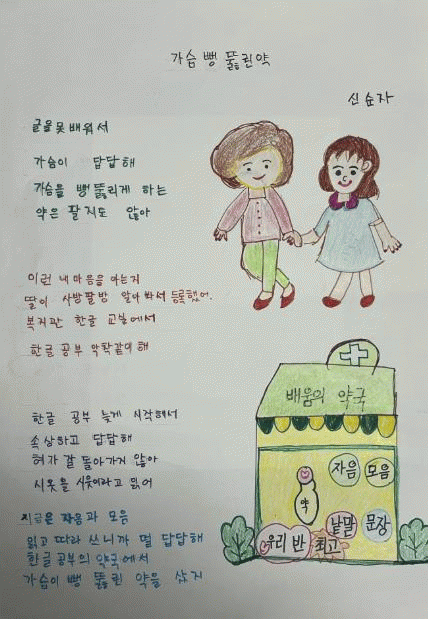 가슴 뻥 뚫린약
신순자
글을 못 배워서
가슴이 답답해
가슴을 뻥 뚫리게 하는
약은 팔지도 않아
이런 내마음을 아는지
딸이 사방팔방 알아봐서 등록했어.
복지관 한글 교실에서
한글 공부 악착같이 해
한글 공부 늦게 시작해서
속상하고 답답해
혀가 잘 돌아가지 않아
시옷을 시읏이라고 읽어
지금은 자음과 모음
읽고 따라 쓰니까 덜 답답해
한글공부의 약국에서
가슴이 뻥 뚫린 약을 샀지
배움의 약국
자음 모음
약
낱말 문장
우리 반 최고